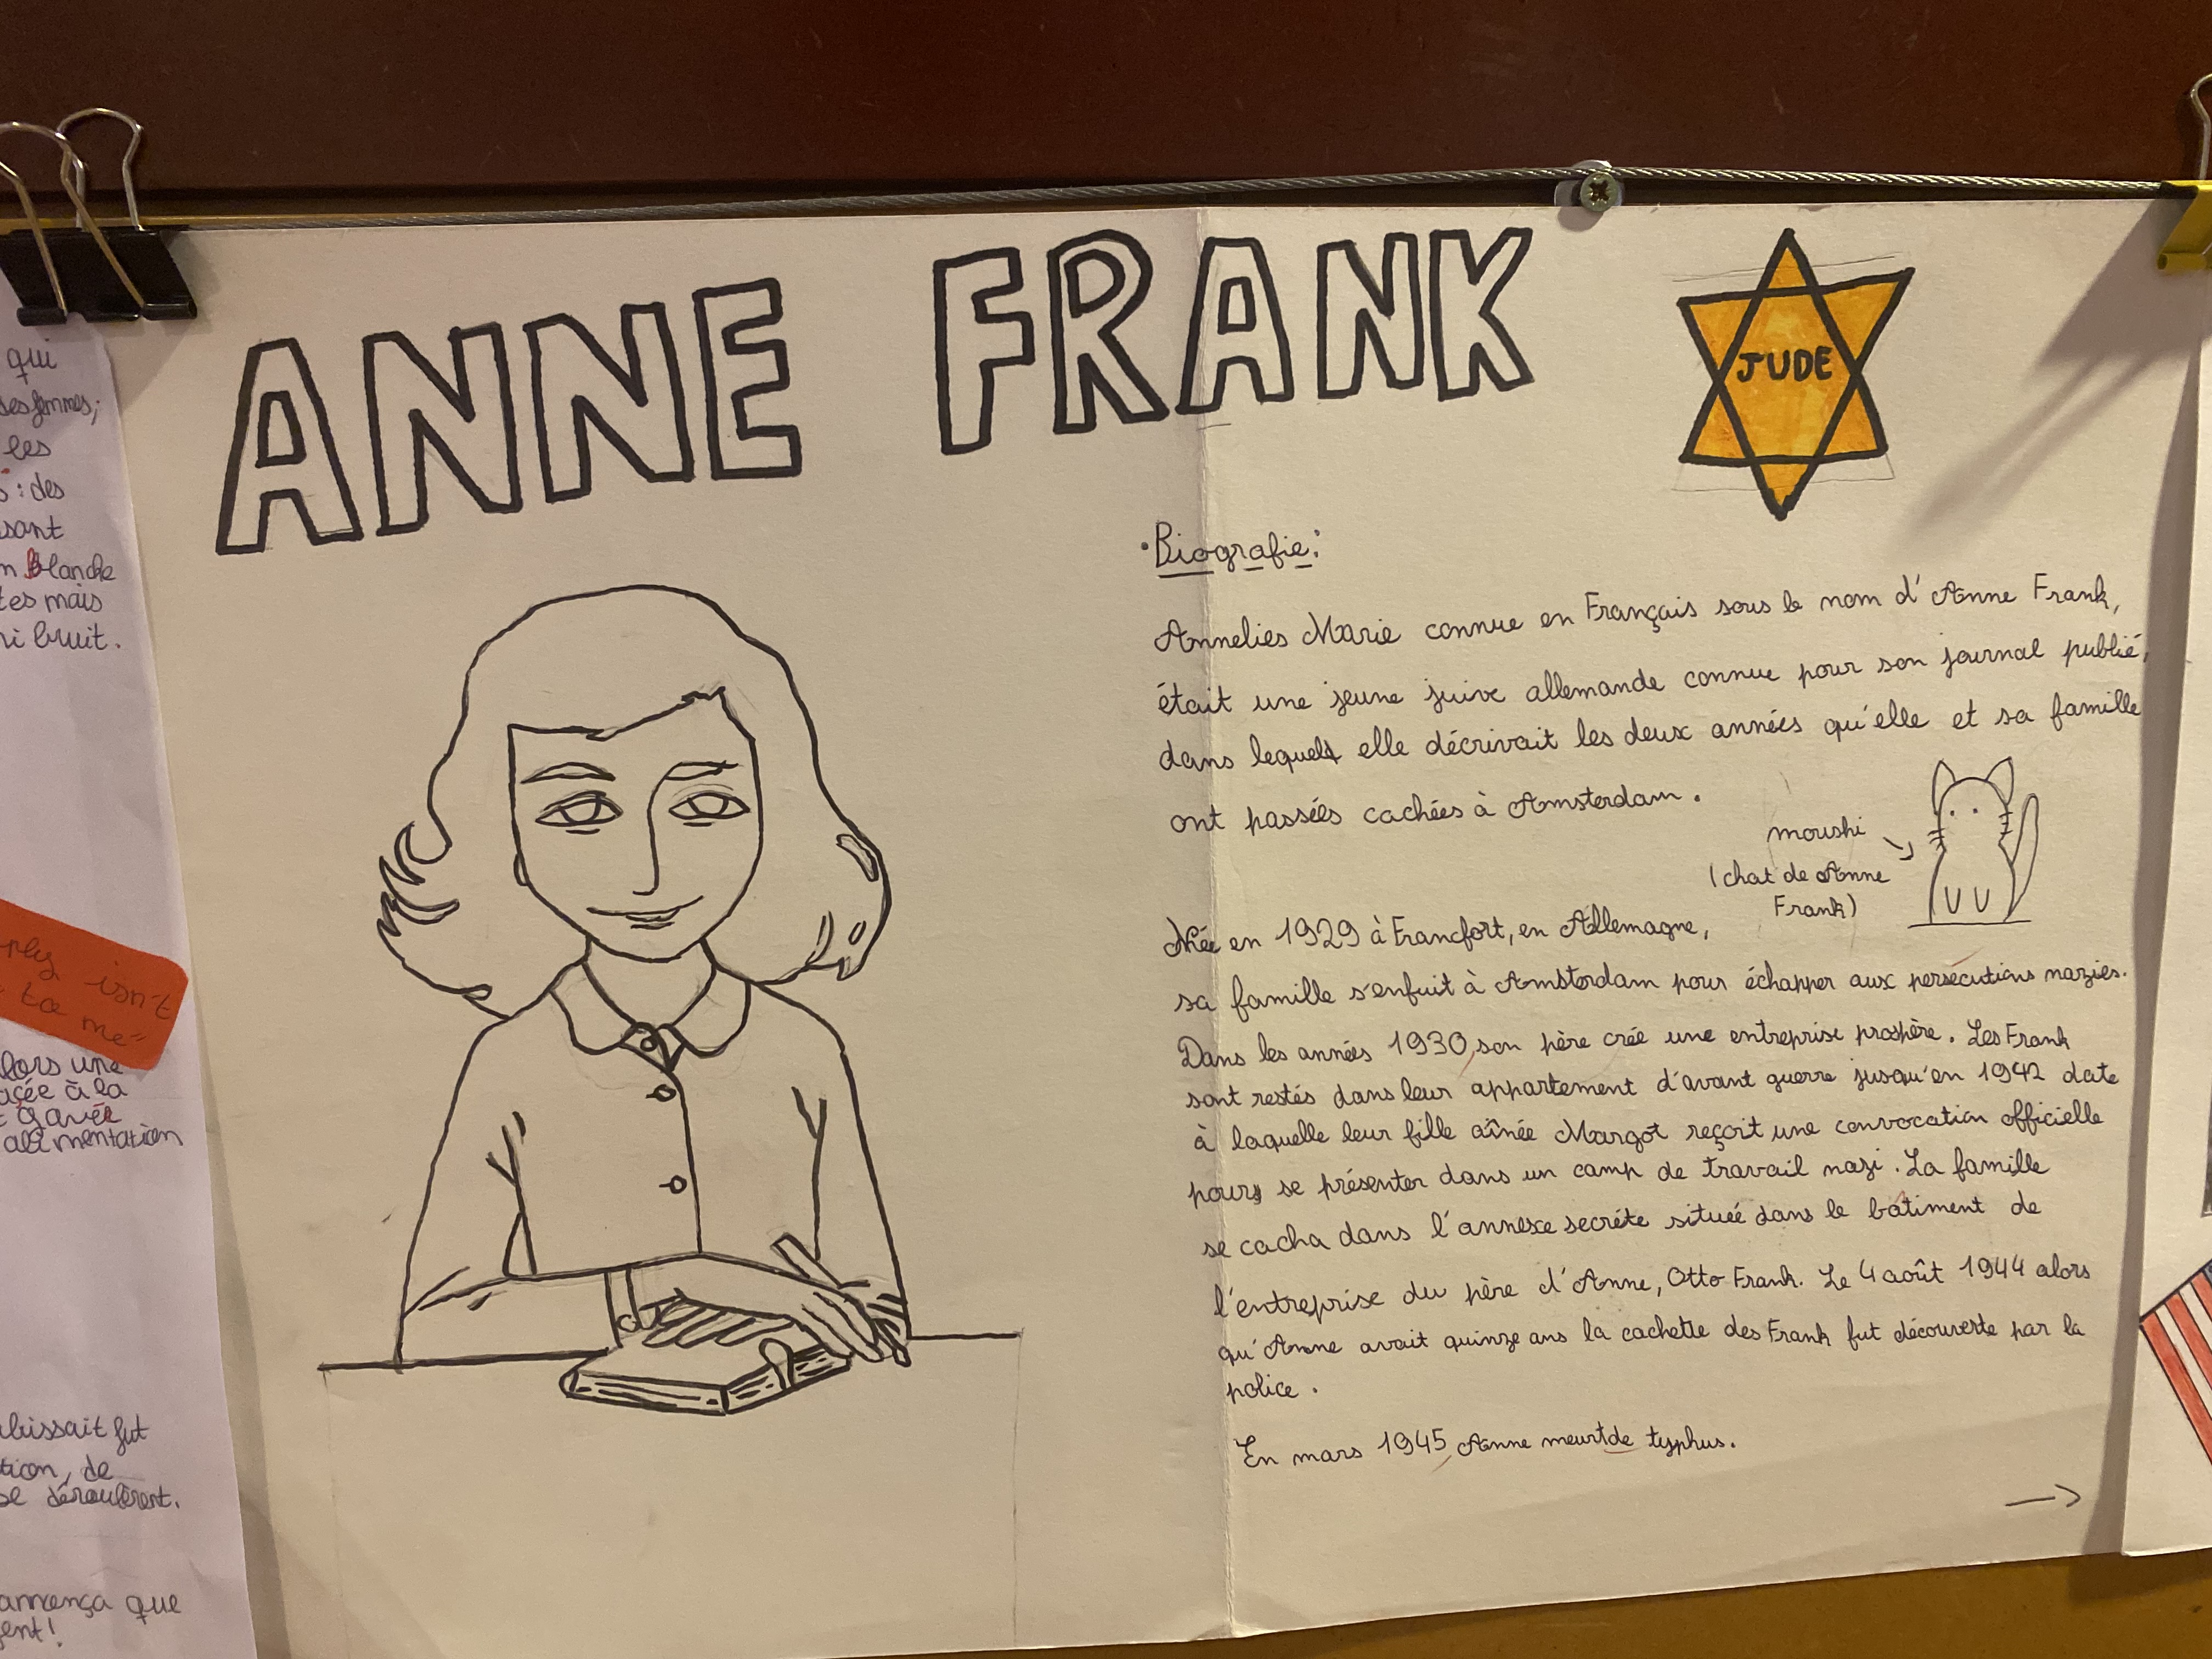 ANNE FRANK
JUDE
• Biografie:
Annelies Marie connue en Français sous le nom d'Anne Frank,
était une jeune juive allemande connue pour son journal publié,
dans lequel elle décrivait les deux années qu'elle et sa famille
ont passées cachées à Amsterdam.
moushi
(chat de Anne
Frank)
Née en 1929 à Francfort, en Allemagne,
sa famille s'enfuit à Amsterdam pour échapper aux persécutions nazies.
Dans les années 1930, son père crée une entreprise prospère. Les Frank
sont restés dans leur appartement d'avant guerre jusqu'en 1942 date
à laquelle leur fille aînée Margot reçoit une convocation officielle
pour se présenter dans un camp de travail nazi. La famille
se cacha dans l'annexe secrète située dans le bâtiment de
l'entreprise du père d'Anne, Otto Frank. Le 4 août 1944 alors
qu'Anne avait quinze ans la cachette des Frank fut découverte par la
police.
En mars 1945, Anne meurt de typhus.
→
qui
les
: des
blanche
mais
bruit.
isn't
to me"
une
à la
gavée
alimentation
fut
de
se déroulèrent.
que